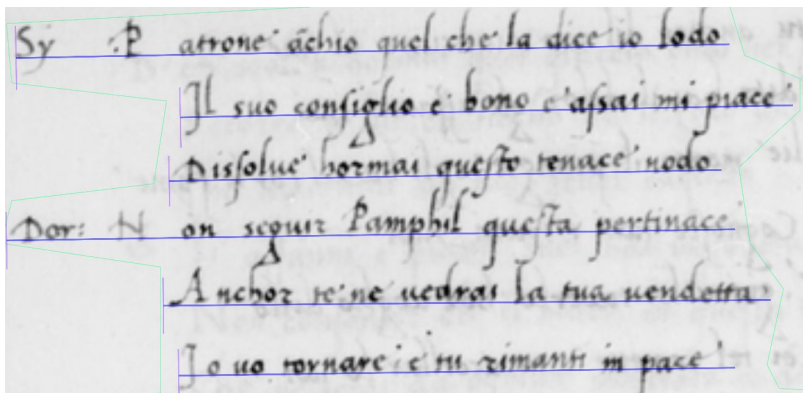 Sy P atrone āchio quel che la dice io lodo
Il suo consiglio e bono e assai mi piace
Dissolue hormai questo tenace nodo
Dor: N on seguir Pamphil questa pertinace
Anchor te ne uedrai la tua uendetta
Io uo tornare e tu rimanti in pace